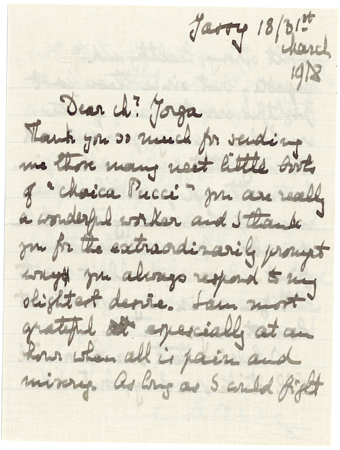 Jassy 18/31st
March
1918
Dear Mr. Jorga
Thank you so much for sending
me those many neat little
of "Pucci" you are really
a wonderful worker and I thank
you for the extraordinarily prompt
way you always respond to my
slightest desire. I am most
grateful especially at an
hour when all is pain and
misery. As long as I could fight